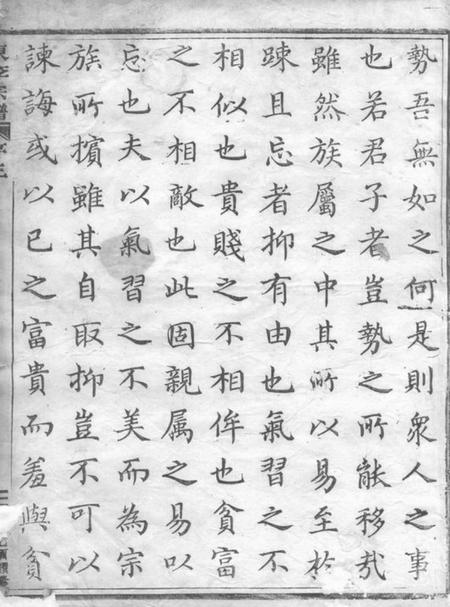 勢吾無如之何是則衆人之事
也若君子者豈勢之所能移哉
雖然族屬之中其所以易至於
踈且忘者抑有由也氣習之不
相似也貴賤之不相侔也貧富
之不相敵也此固親属之易以
忘也夫以氣習之不美而為宗
族所擯雖其自取抑豈不可以
諫誨或以已之富貴而羞與貧